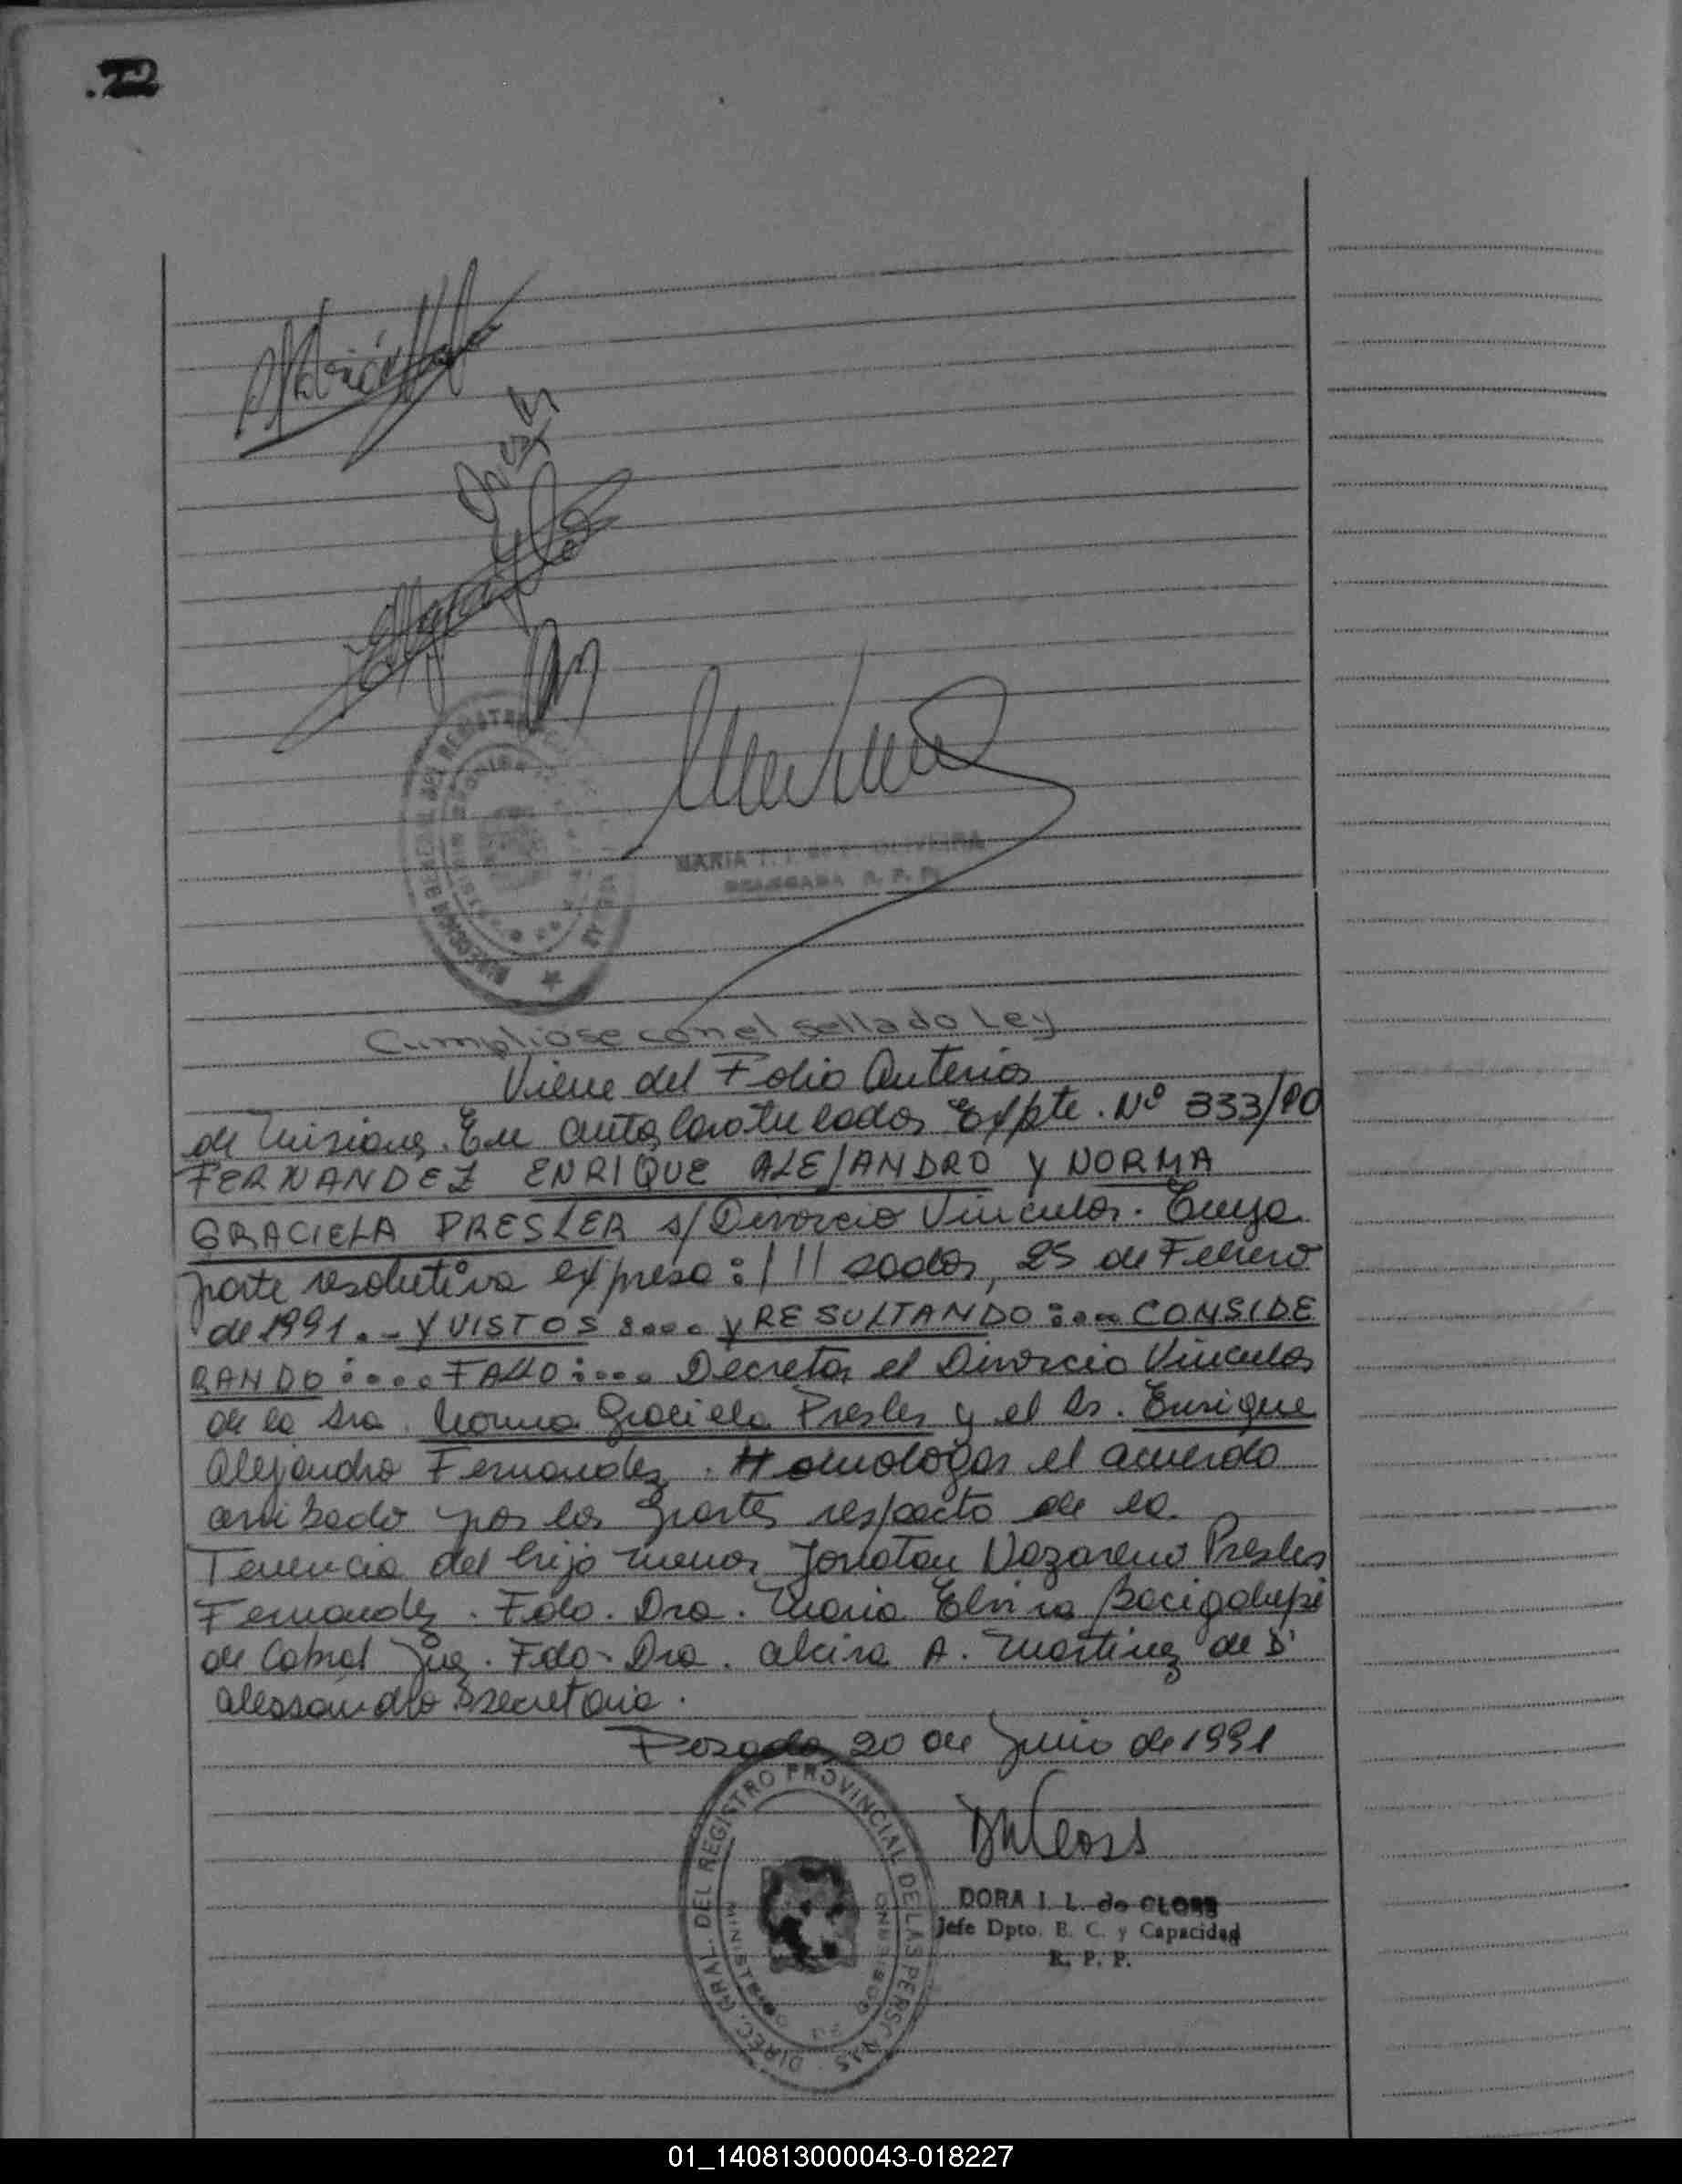 22
MARIA
OLIVEIRA
DELEGADA R. P. P.
Cumpliose con el sellado Ley
Viene del Folio Anterior
de Misiones. En autos caratulados Expte. Nº 333/90
FERNANDEZ ENRIQUE ALEJANDRO y NORMA
GRACIELA PRESLER s/ Divorcio Vincular. Cuya
parte resolutiva expresa: /// sadas, 25 de Febrero
de 1991.- Y VISTOS:.... y RESULTANDO:... CONSIDE
RANDO:.... FALLO:.... Decretar el Divorcio Vincular
de la Sra. Norma Graciela Presler y el Sr. Enrique
Alejandro Fernandez. Homologar el acuerdo
arribado por las partes respecto de la
Tenencia del hijo menor Jonatan Nazareno Presler
Fernandez. Fdo. Dra. Maria Elvira Bacigalupi
de Cabral Juez. Fdo. Dra. Alcira A. Martinez de D'
Alessandro Secretaria.
Posadas 20 de Junio de 1991
DIREC. GRAL. DEL REGISTRO PROVINCIAL DE LAS PERSONAS
MINISTERIO DE GOBIERNO
DORA I. L. de CLOSS
Jefe Dpto. E. C. y Capacidad
R. P. P.
01_140813000043-018227